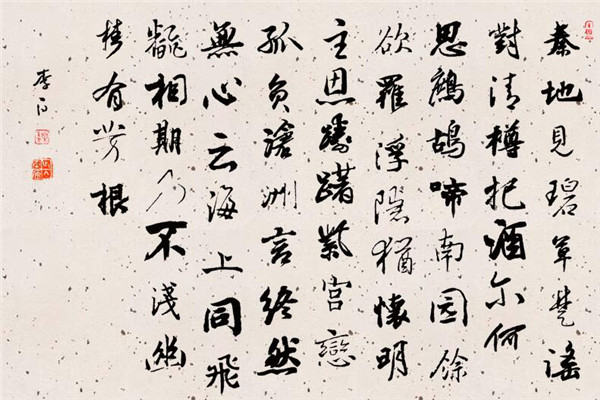 秦地見碧草楚謠
對清樽把酒尓何
思鷓鴣啼南园餘
欲羅浮隱猶懷明
主恩躊躇紫宮戀
孤負滄洲言終然
無心云海上同飛
翻相期乃不淺幽
桂有芳根
李白